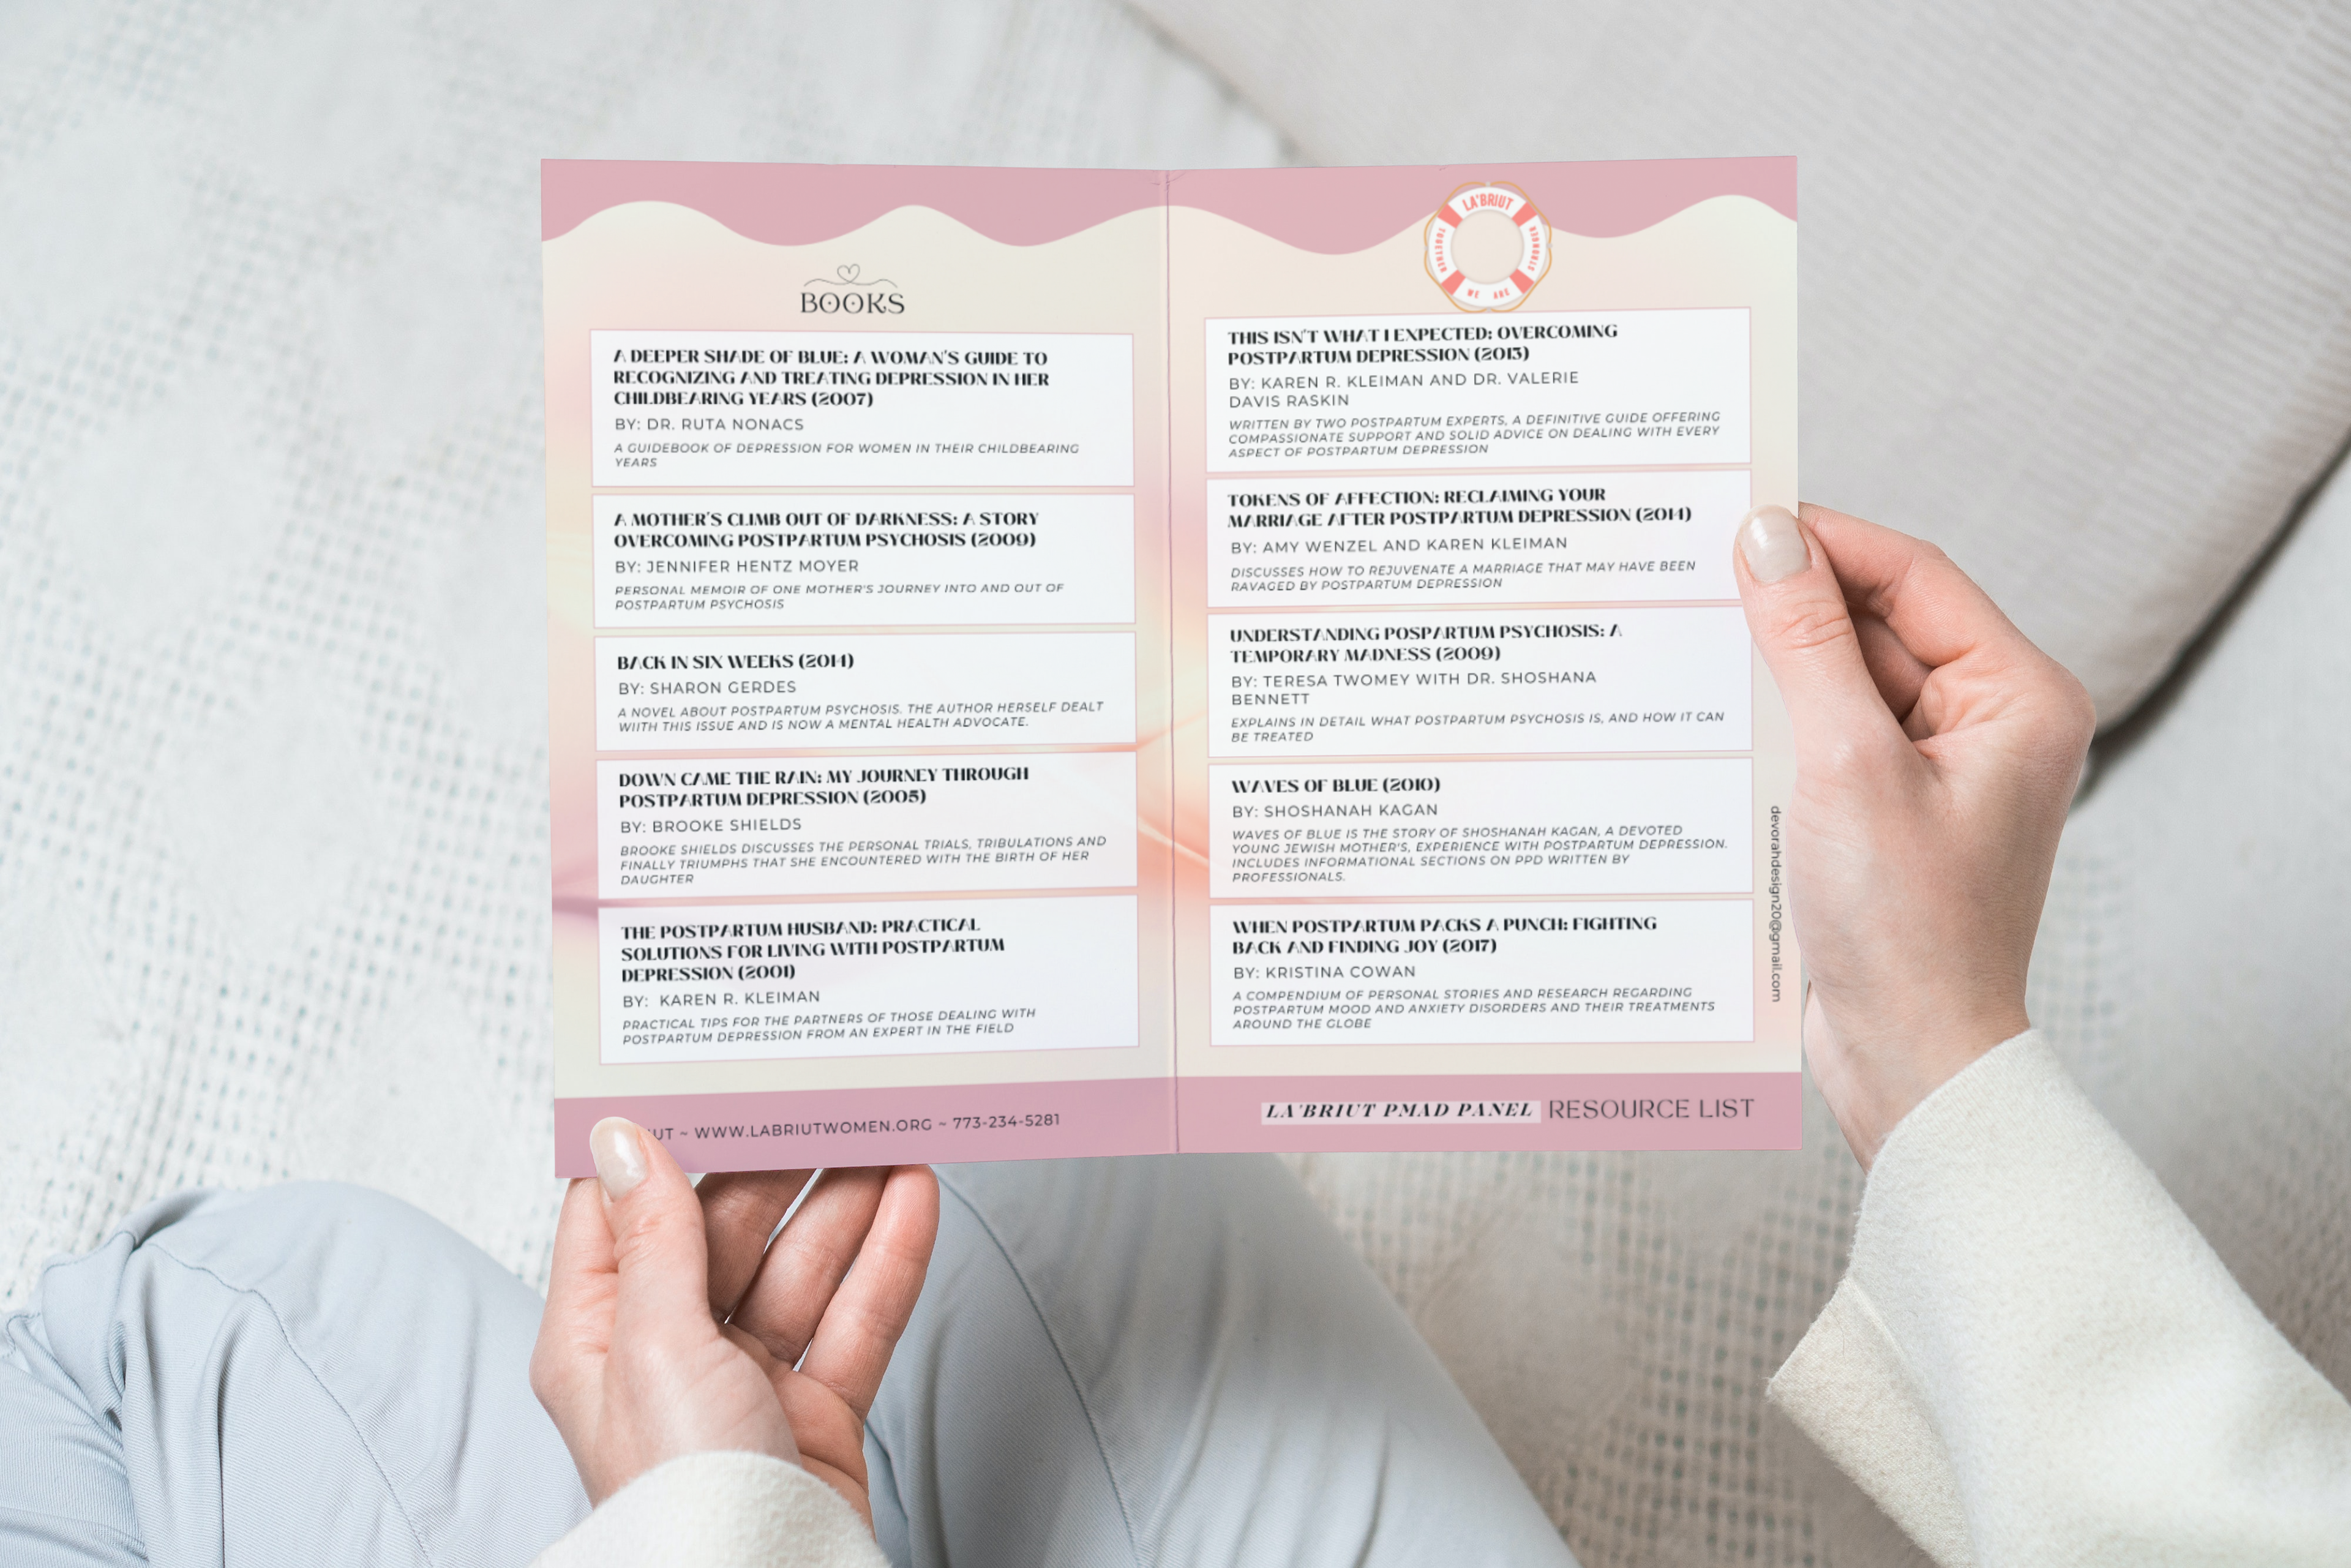 BOOKS
A DEEPER SHADE OF BLUE: A WOMAN'S GUIDE TO
RECOGNIZING AND TREATING DEPRESSION IN HER
CHILDBEARING YEARS (2007)
BY: DR. RUTA NONACS
A GUIDEBOOK OF DEPRESSION FOR WOMEN IN THEIR CHILDBEARING
YEARS
A MOTHER'S CLIMB OUT OF DARKNESS: A STORY
OVERCOMING POSTPARTUM PSYCHOSIS (2009)
BY: JENNIFER HENTZ MOYER
PERSONAL MEMOIR OF ONE MOTHER'S JOURNEY INTO AND OUT OF
POSTPARTUM PSYCHOSIS
BACK IN SIX WEEKS (2014)
BY: SHARON GERDES
A NOVEL ABOUT POSTPARTUM PSYCHOSIS. THE AUTHOR HERSELF DEALT
WIITH THIS ISSUE AND IS NOW A MENTAL HEALTH ADVOCATE.
DOWN CAME THE RAIN: MY JOURNEY THROUGH
POSTPARTUM DEPRESSION (2005)
BY: BROOKE SHIELDS
BROOKE SHIELDS DISCUSSES THE PERSONAL TRIALS, TRIBULATIONS AND
FINALLY TRIUMPHS THAT SHE ENCOUNTERED WITH THE BIRTH OF HER
DAUGHTER
THE POSTPARTUM HUSBAND: PRACTICAL
SOLUTIONS FOR LIVING WITH POSTPARTUM
DEPRESSION (2001)
BY: KAREN R. KLEIMAN
PRACTICAL TIPS FOR THE PARTNERS OF THOSE DEALING WITH
POSTPARTUM DEPRESSION FROM AN EXPERT IN THE FIELD
UT ~ WWW.LABRIUTWOMEN.ORG ~ 773-234-5281
LA'BRIUT
TOGETHER
WE ARE
STRONGER
THIS ISN'T WHAT I EXPECTED: OVERCOMING
POSTPARTUM DEPRESSION (2013)
BY: KAREN R. KLEIMAN AND DR. VALERIE
DAVIS RASKIN
WRITTEN BY TWO POSTPARTUM EXPERTS, A DEFINITIVE GUIDE OFFERING
COMPASSIONATE SUPPORT AND SOLID ADVICE ON DEALING WITH EVERY
ASPECT OF POSTPARTUM DEPRESSION
TOKENS OF AFFECTION: RECLAIMING YOUR
MARRIAGE AFTER POSTPARTUM DEPRESSION (2014)
BY: AMY WENZEL AND KAREN KLEIMAN
DISCUSSES HOW TO REJUVENATE A MARRIAGE THAT MAY HAVE BEEN
RAVAGED BY POSTPARTUM DEPRESSION
UNDERSTANDING POSPARTUM PSYCHOSIS: A
TEMPORARY MADNESS (2009)
BY: TERESA TWOMEY WITH DR. SHOSHANA
BENNETT
EXPLAINS IN DETAIL WHAT POSTPARTUM PSYCHOSIS IS, AND HOW IT CAN
BE TREATED
WAVES OF BLUE (2010)
BY: SHOSHANAH KAGAN
WAVES OF BLUE IS THE STORY OF SHOSHANAH KAGAN, A DEVOTED
YOUNG JEWISH MOTHER'S, EXPERIENCE WITH POSTPARTUM DEPRESSION.
INCLUDES INFORMATIONAL SECTIONS ON PPD WRITTEN BY
PROFESSIONALS.
WHEN POSTPARTUM PACKS A PUNCH: FIGHTING
BACK AND FINDING JOY (2017)
BY: KRISTINA COWAN
A COMPENDIUM OF PERSONAL STORIES AND RESEARCH REGARDING
POSTPARTUM MOOD AND ANXIETY DISORDERS AND THEIR TREATMENTS
AROUND THE GLOBE
devorahdesign20@gmail.com
LA'BRIUT PMAD PANEL RESOURCE LIST